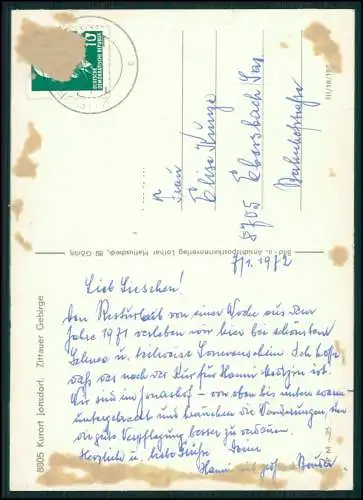 10
DEUTSCHE
DEMOKRATISCHE REPUBLIK
Frau
Elise Kunze
8705 Ebersbach Sa.
Bahnhofstraße
III/18/197
Bild- u. Ansichtskartenverlag Lothar Martuschek, 89 Görlitz
7/1. 1972
Lieb Lieschen!
Den Resturlaub von einer Woche aus dem
Jahre 1971 verleben wir hier bei schönstem
Schnee u. teilweise Sonnenschein. Ich hoffe
daß das noch der Kur für Hanni ist.
Wir sind im Jonashof - von oben bis unten warm
untergebracht und brauchen die Wanderungen um
die gute Verpflegung besser zu verdauen.
Herzliche u. liebe Grüße Deine
Hanni mit
8805 Kurort Jonsdorf, Zittauer Gebirge
M -,25